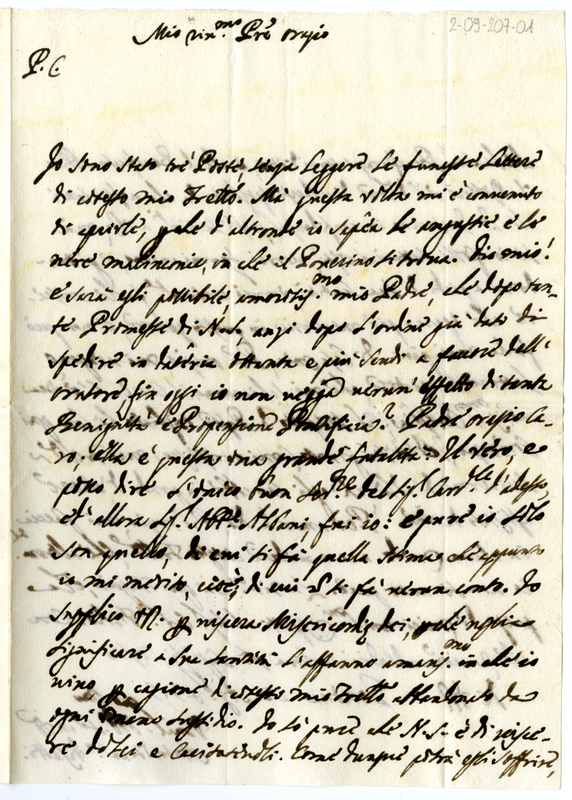 2-09-207-01
Mio rin.mo Prê Orazio
P. C.
Io sono stato trè Poste, senza leggere le funeste lettere
di cotesto mio Frettô. Mà questa volta mi è convenuto
di aprirle, e d'altronde io sapêa le angustie e le
nere malinconie, in che il Poverino si trova. Dio mio!
e sarà egli possibile amorosiss.mo mio Padre, che dopo tan-
te Promesse di N. S. anzi dopo l'ordine già dato di
spedire in datêria ottanta e più scudi a favore dell'
oratore fin oggi io non vegga verun' effetto di tanta
Benignità e Propensione Pontificia? Padre Orazio Ca-
ro, ella è questa una grande fatalità. Il vero, e
posso dire l'unico buon Ser.re del Sig. Card.le d'adesso,
et allora Sig. Abb.e Albani, fui io: e pure io solo
son quello, di cui si fà quella stima che appunto
io mi merito, cioè, di cui si fà verun conto. Io
supplico VR. per viscera Misericordiæ dei, voglia
significare a Sua Santità l'affanno in che io
vivo per cagione di cotesto mio Frettô abbandonato da
ogni umano sussidio. Io sò pure che N. S. è di visce-
re dolci e caritatevoli. Come dunque potrà egli soffrire,